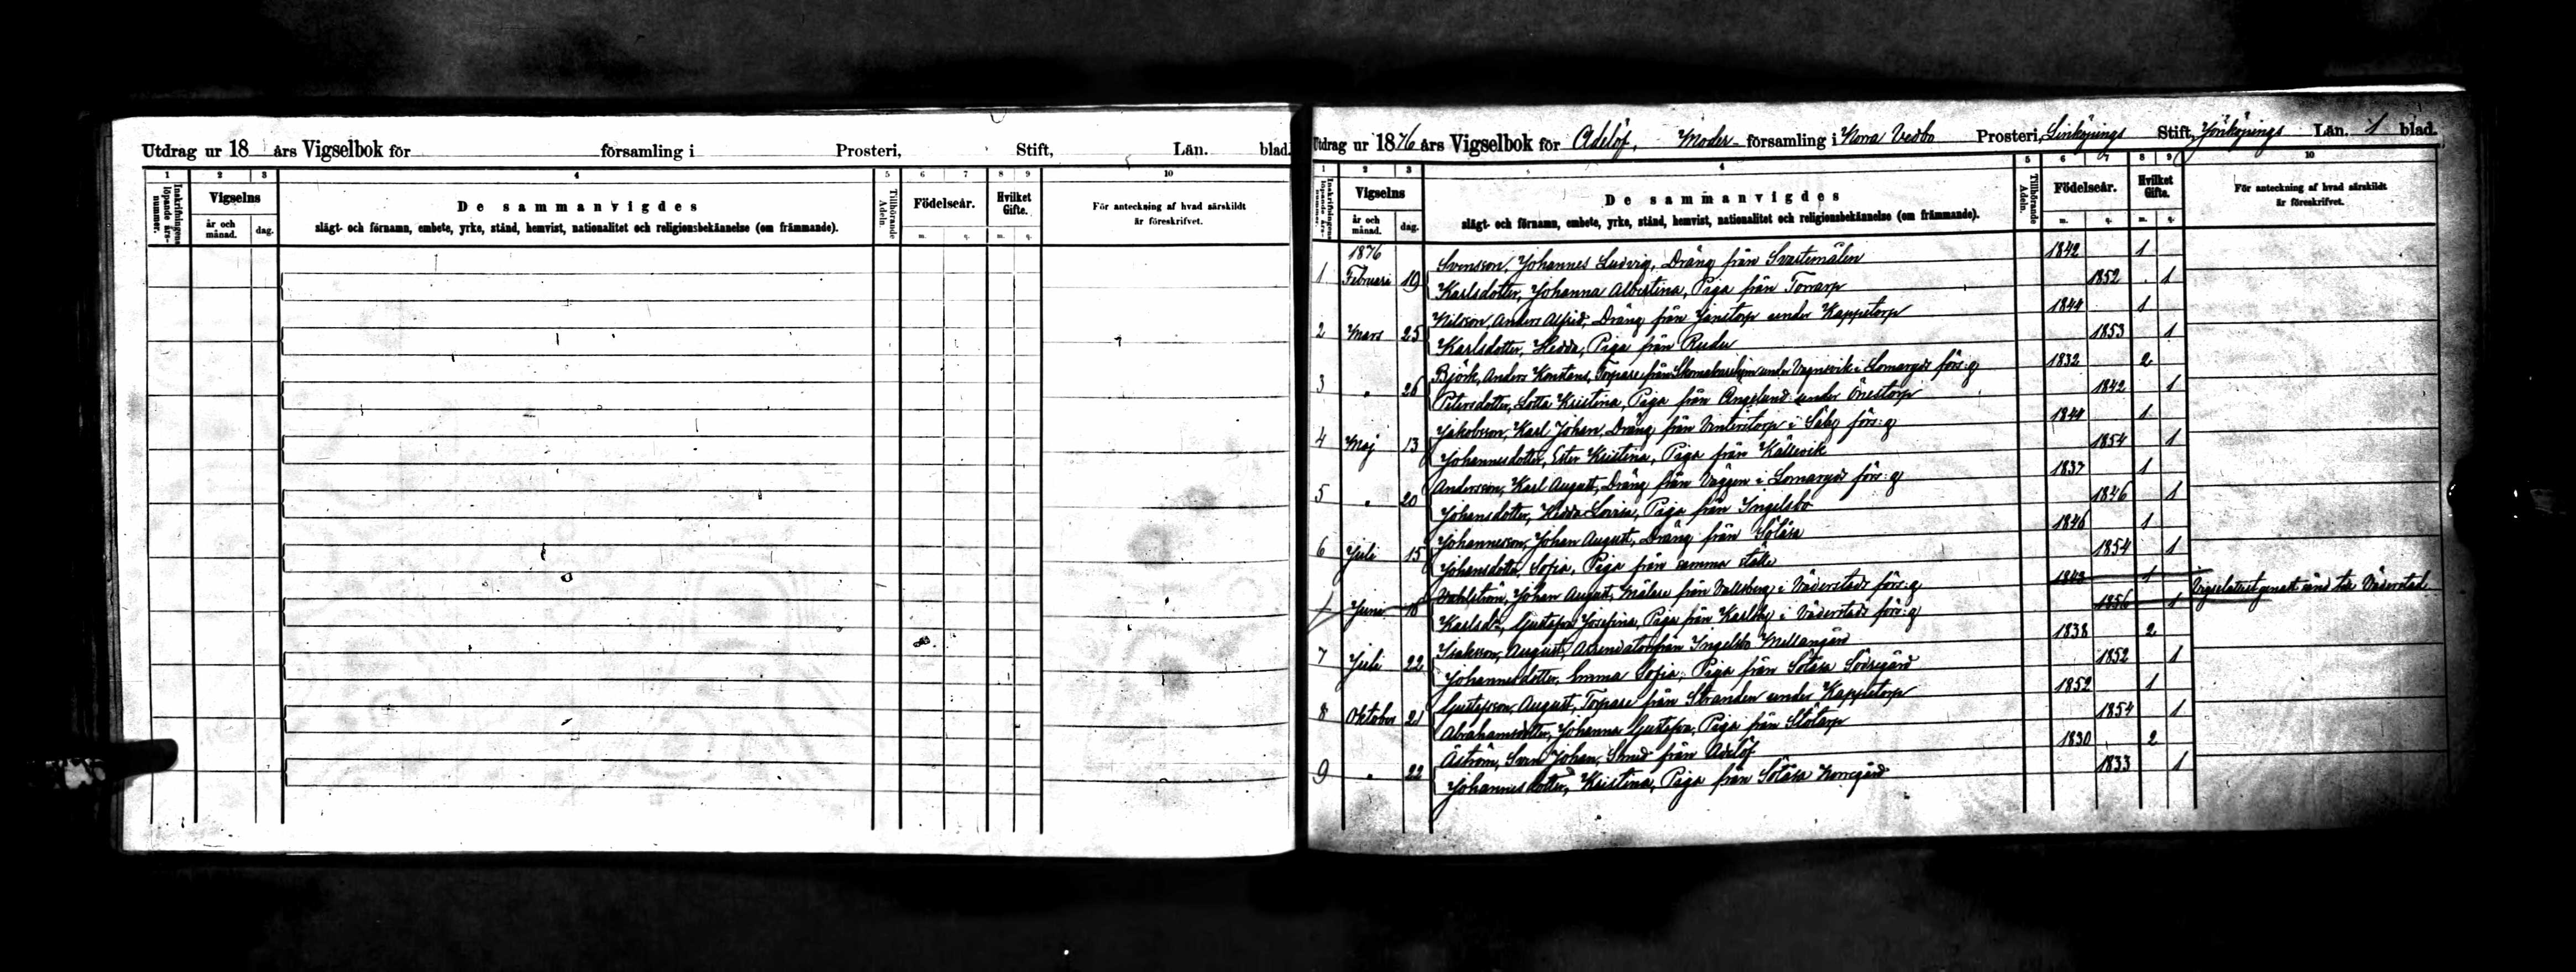 Utdrag ur 18 års Vigselbok för församling i Prosteri, Stift, Län. blad.
1 2 3 4 5 6 7 8 9 10
Inskrifningens löpande års-nummer.
Vigselns
år och månad. dag.
De sammanvigdes
slägt- och förnamn, embete, yrke, stånd, hemvist, nationalitet och religionsbekännelse (om främmande).
Tillhörande Adeln.
Födelseår.
m. q.
Hvilket Gifte.
m. q.
För anteckning af hvad särskildt
är föreskrifvet.
Utdrag ur 1876 års Vigselbok för Adelöf, Moder församling i Norra Vedbo Prosteri, Linköpings Stift, Jönköpings Län. 1 blad.
1 2 3 4 5 6 7 8 9 10
Inskrifningens löpande års-nummer.
Vigselns
år och månad. dag.
De sammanvigdes
slägt- och förnamn, embete, yrke, stånd, hemvist, nationalitet och religionsbekännelse (om främmande).
Tillhörande Adeln.
Födelseår.
m. q.
Hvilket Gifte.
m. q.
För anteckning af hvad särskildt
är föreskrifvet.
1876
Svensson, Johannes Ludvig, Dräng från Svartemålen 1842 1
1 Februari 19 Karlsdotter, Johanna Albertina, Piga från Torrarp 1852 1
Nilsson, Anders Alfrid, Dräng från Jönstorp under Kappetorp 1844 1
2 Mars 25 Karlsdotter, Hedda, Piga från Rudu 1853 1
Björk, Anders Konstans, Torpare från under i Lomaryds förs:g 1832 2
3 " 26 Petersdotter, Lotta Kristina, Piga från Ängelund under Önestorp 1842 1
Jakobsson, Karl Johan, Dräng från Vinterstorp i Säby förs:g 1844 1
4 Maj 13 Johannesdotter, Ester Kristina, Piga från Källevik 1854 1
Andersson, Karl August, Dräng från Väggen i Lomaryds förs:g 1837 1
5 " 20 Johansdotter, Hedda Lovisa, Piga från Ingelsbo 1846 1
Johannesson, Johan August, Dräng från Sötåsa 1846 1
6 Juli 15 Johansdotter, Sofia, Piga från samma ställe 1854 1
Wahlström, Johan August, Målare från Vallsberg i Väderstads förs:g 1842 1
Juni 18 Karlsdr, Gustafva Josefina, Piga från Karlsby i Väderstads förs:g 1856 1 Vigselattest genast sänd till Väderstad
Isaksson, August, Arrendator från Ingelsbo Mellangård 1838 2
7 Juli 22 Johannesdotter, Emma Sofia, Piga från Sötåsa Södregård 1852 1
Gustafsson, August, Torpare från Stranden under Kappetorp 1852 1
8 Oktober 21 Abrahamsdotter, Johanna Gustafva, Piga från Stötarp 1854 1
Åström, Sven Johan, Smed från Adelöf 1830 2
9 " 22 Johannesdotter, Kristina, Piga från Sötåsa Norregård 1833 1